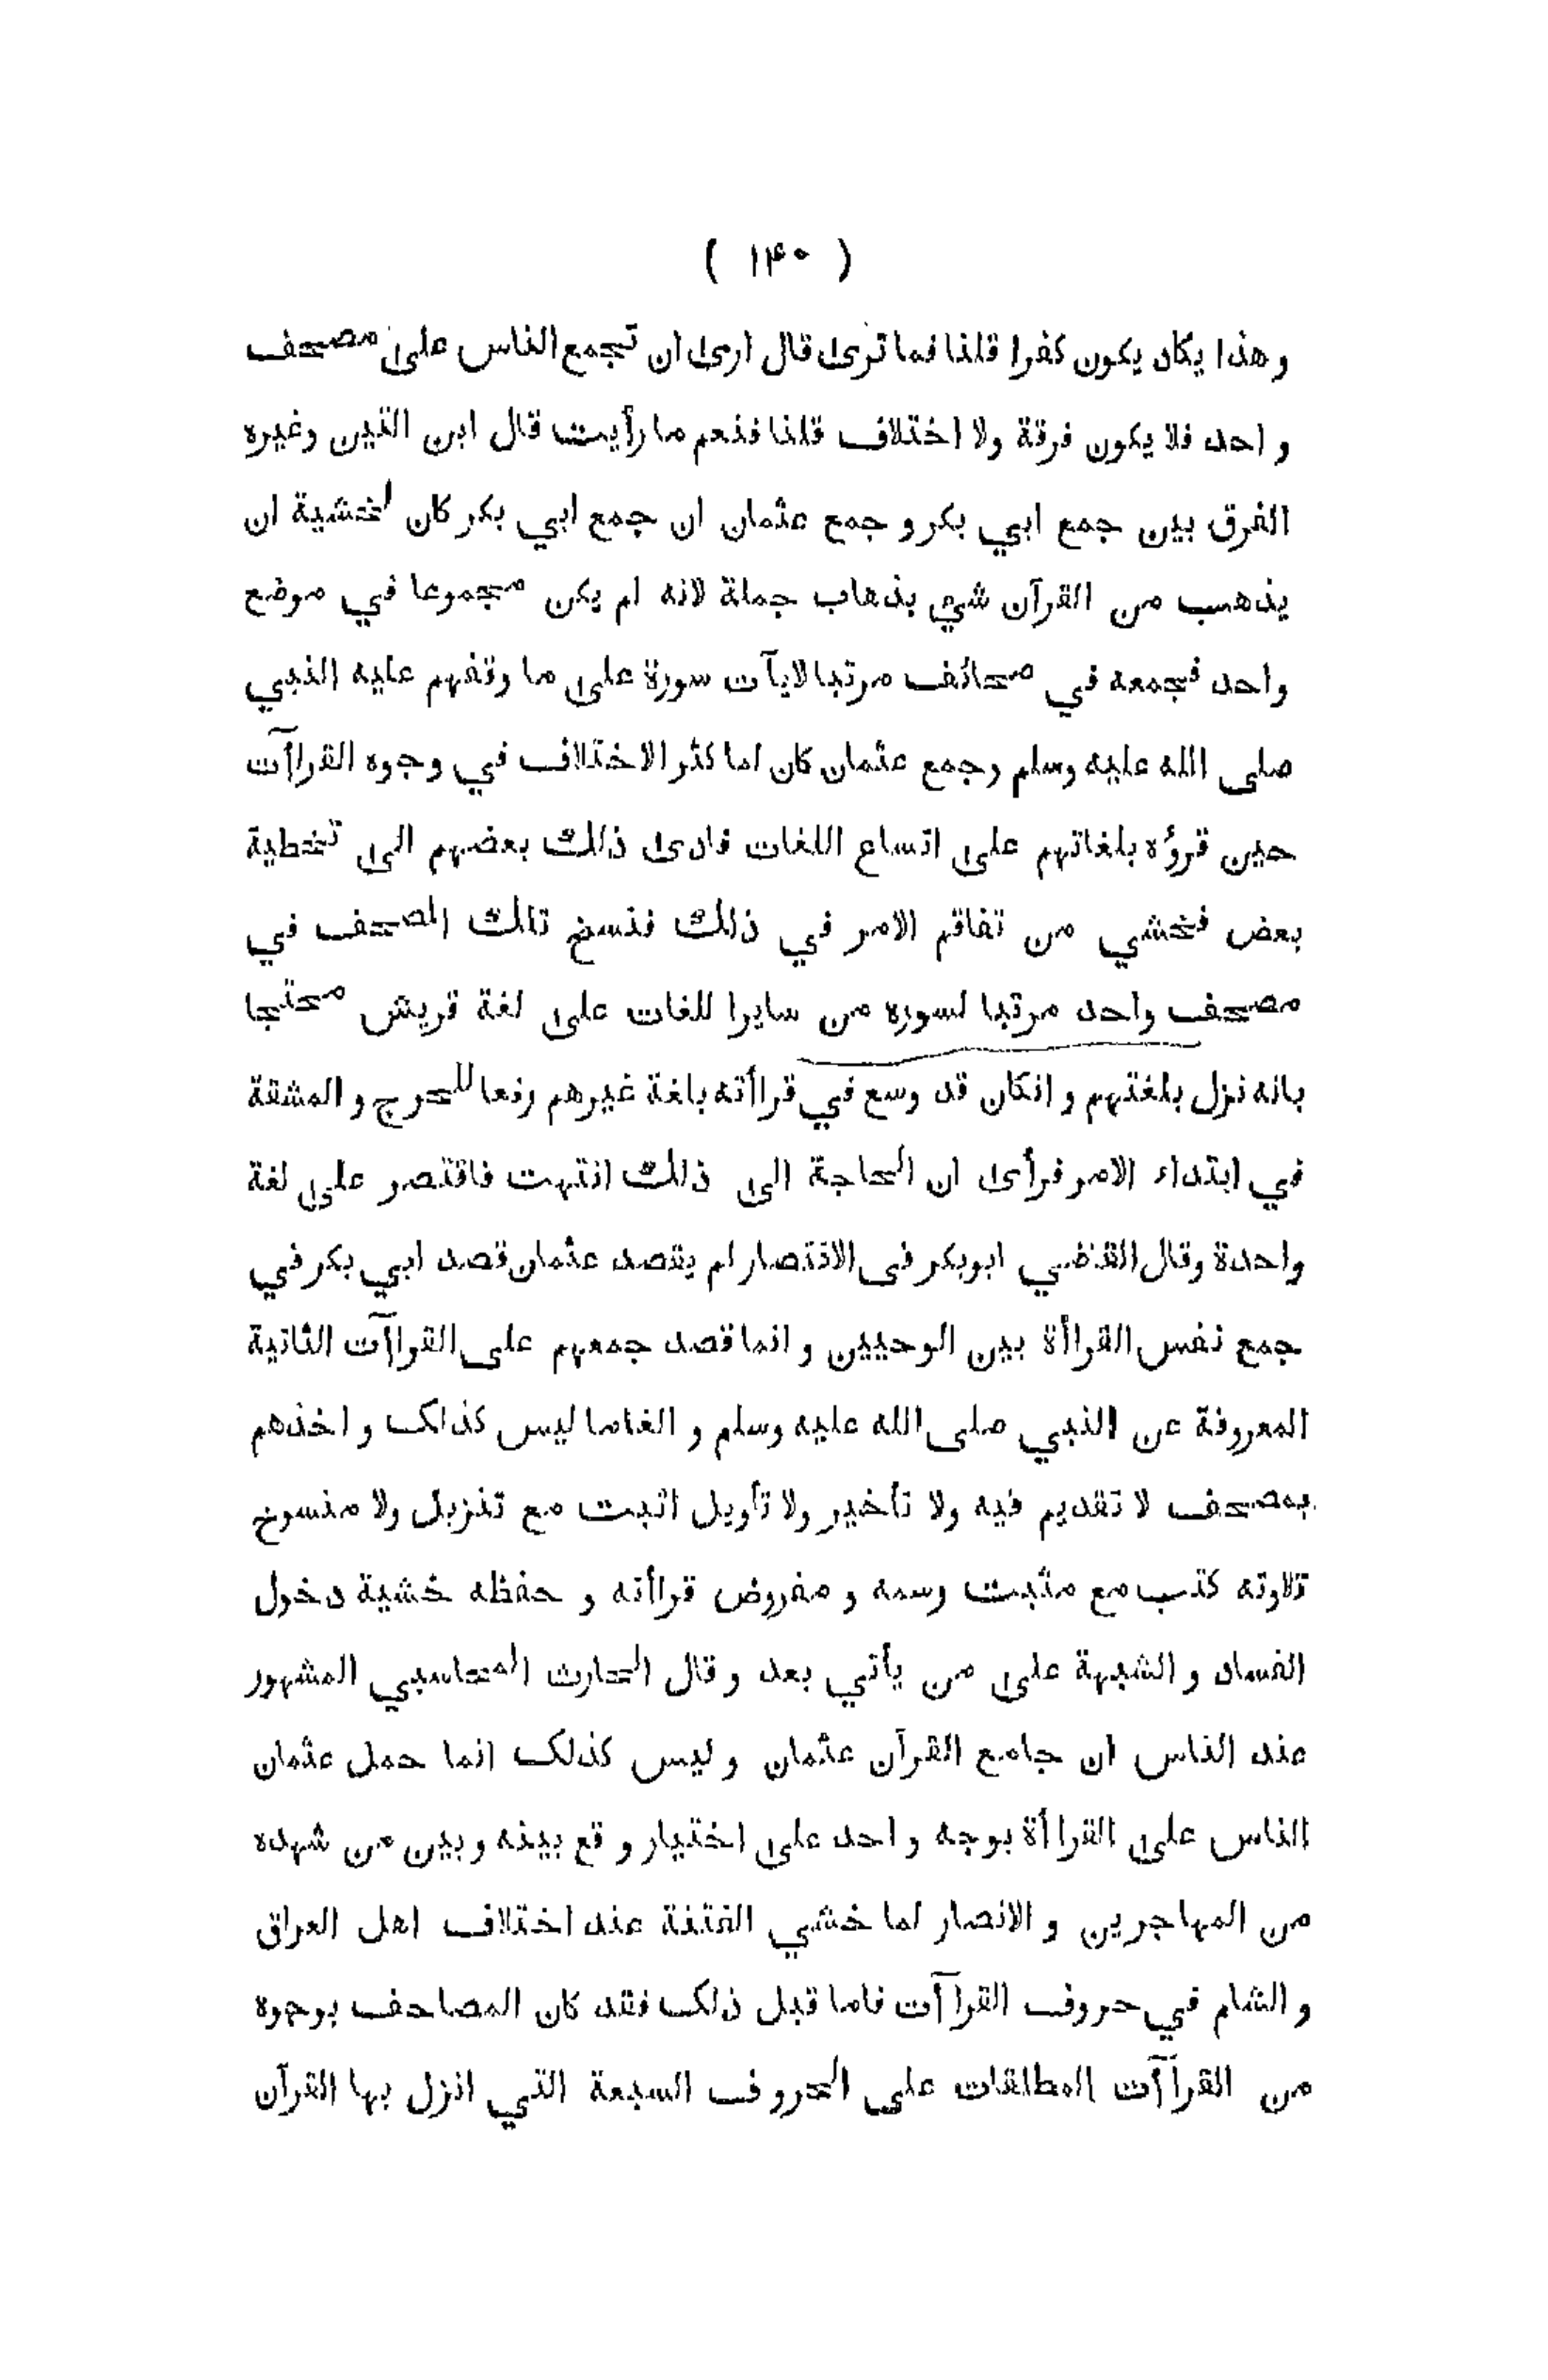 ( ١۴٠ )
و هذا يكاد يكون كفرا قلنا فما ترى قال ارى ان تجمع الناس على مصحف
و احد فلا يكون فرقة ولا اختلاف قلنا فنعم ما رأيت قال ابن التين وغيره
الفرق بين جمع ابي بكر و جمع عثمان ان جمع ابي بكر كان لخشية ان
يذهب من القرآن شي بذهاب جملة لانه لم يكن مجموعا في موضع
واحد فجمعه في صحائف مرتبا لايآت سورة على ما وقفهم عليه النبي
صلى الله عليه وسلم وجمع عثمان كان لما كثر الاختلاف في وجوه القراآت
حين قرؤه بلغاتهم على اتساع اللغات فادى ذلك بعضهم الى تخطية
بعض فخشي من تفاقم الامر في ذلك فنسخ تلك الصحف في
مصحف واحد مرتبا لسوره من سايرا للغات على لغة قريش محتجا
بانه نزل بلغتهم و انكان قد وسع في قراأته بلغة غيرهم رفعا للحرج و المشقة
في ابتداء الامر فرأى ان الحاجة الى ذلك انتهت فاقتصر على لغة
واحدة وقال القاضي ابوبكر فى الانتصار لم يقصد عثمان قصد ابي بكر في
جمع نفس القراأة بين الوحيين و انما قصد جمعهم على القراآت الثانية
المعروفة عن النبي صلى الله عليه وسلم و الغاما ليس كذلك و اخذهم
بمصحف لا تقديم فيه ولا تأخير ولا تأويل اثبت مع تنزيل ولا منسوخ
تلاوته كتب مع مثبت رسمه و مفروض قراأته و حفظه خشية دخول
الفساد و الشبهة على من يأتي بعد و قال الحارث المحاسبي المشهور
عند الناس ان جامع القرآن عثمان و ليس كذلك انما حمل عثمان
الناس على القراأة بوجه و احد على اختيار و قع بينه و بين من شهده
من المهاجرين و الانصار لما خشي الفتنة عند اختلاف اهل العراق
و الشام في حروف القراآت فاما قبل ذلك فقد كان المصاحف بوجوه
من القراآت المطلقات على الحروف السبعة التي انزل بها القرآن